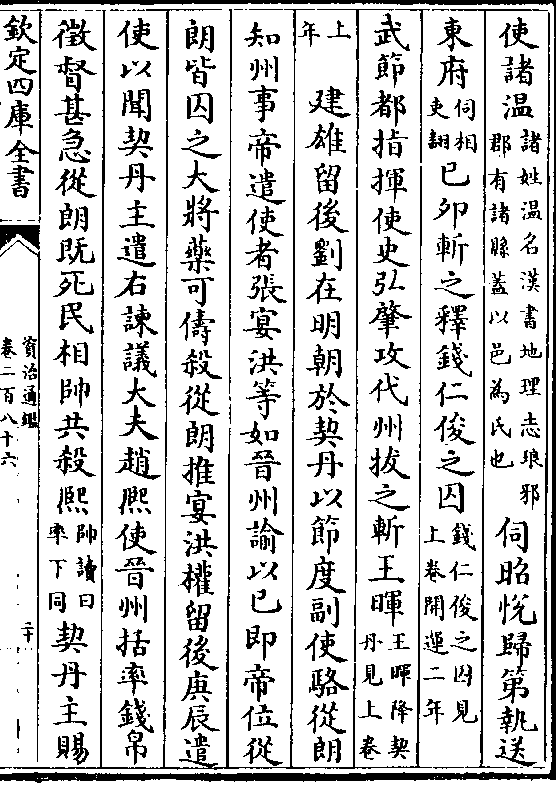 使諸温諸姓温名漢書地理志琅邪郡有諸縣蓋以邑為氏也伺昭悦歸第執送
東府伺相吏翻己卯斬之釋錢仁俊之囚錢仁俊之囚見上卷開運二年
武節都指揮使史弘肇攻代州拔之斬王暉王暉降契丹見上卷
上年　建雄留後劉在明朝於契丹以節度副使駱從朗
知州事帝遣使者張宴洪等如晉州諭以已即帝位從
朗皆囚之大將藥可儔殺從朗推宴洪權留後庚辰遣
使以聞契丹主遣右諫議大夫趙熈使晉州括率錢帛
徵督甚急從朗既死民相帥共殺熈帥讀曰率下同契丹主賜
欽定四庫全書
資治通鑑
卷二百八十六
二十